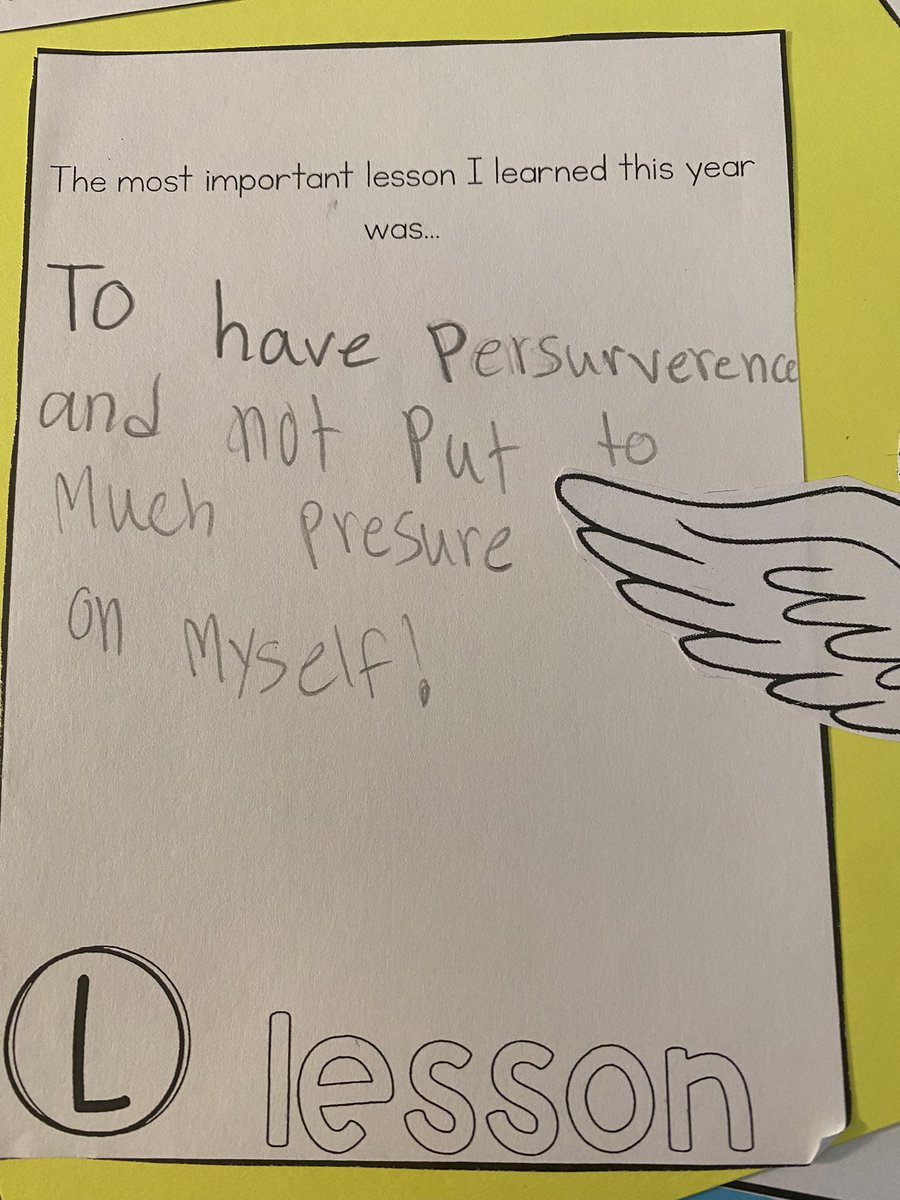 The most important lesson I learned this year
was...
To have Persurverence
and not Put to
Much Presure
on Myself!
L lesson